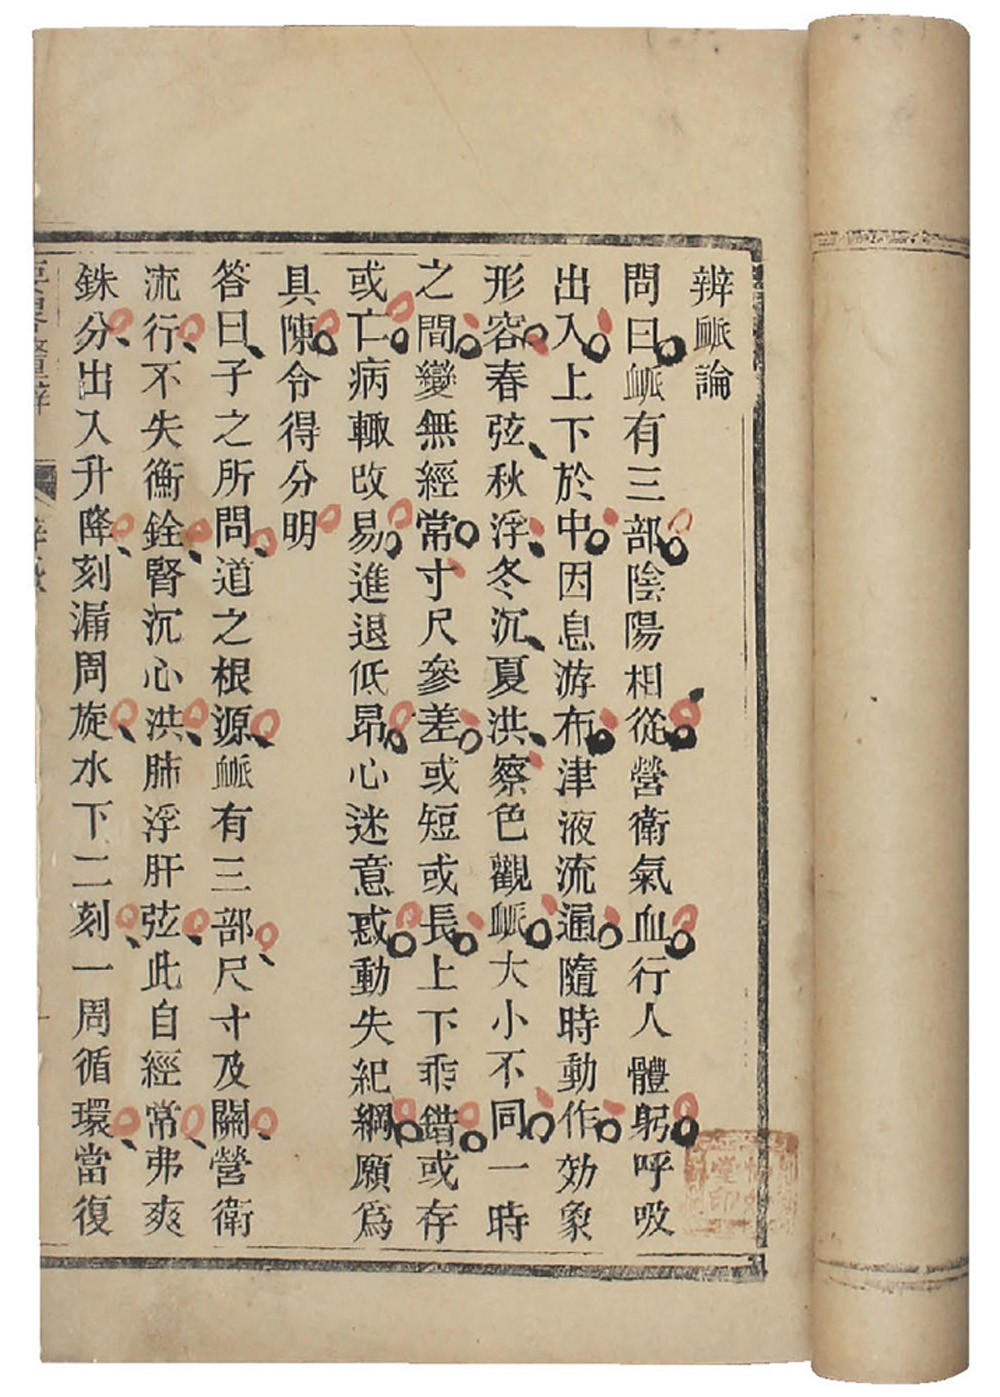 辨脈論
問曰脈有三部陰陽相從營衛氣血行人體躬呼吸
出入上下於中因息游布津液流通隨時動作効象
形容春弦秋浮冬沉夏洪察色觀脈大小不同一時
之間變無經常寸尺參差或短或長上下乖錯或存
或亡病輒改易進退低昂心迷意惑動失紀綱願爲
具陳令得分明
答曰子之所問道之根源脈有三部尺寸及關營衛
流行不失衡銓腎沉心洪肺浮肝弦此自經常弗爽
銖分出入升降刻漏周旋水下二刻一周循環當復